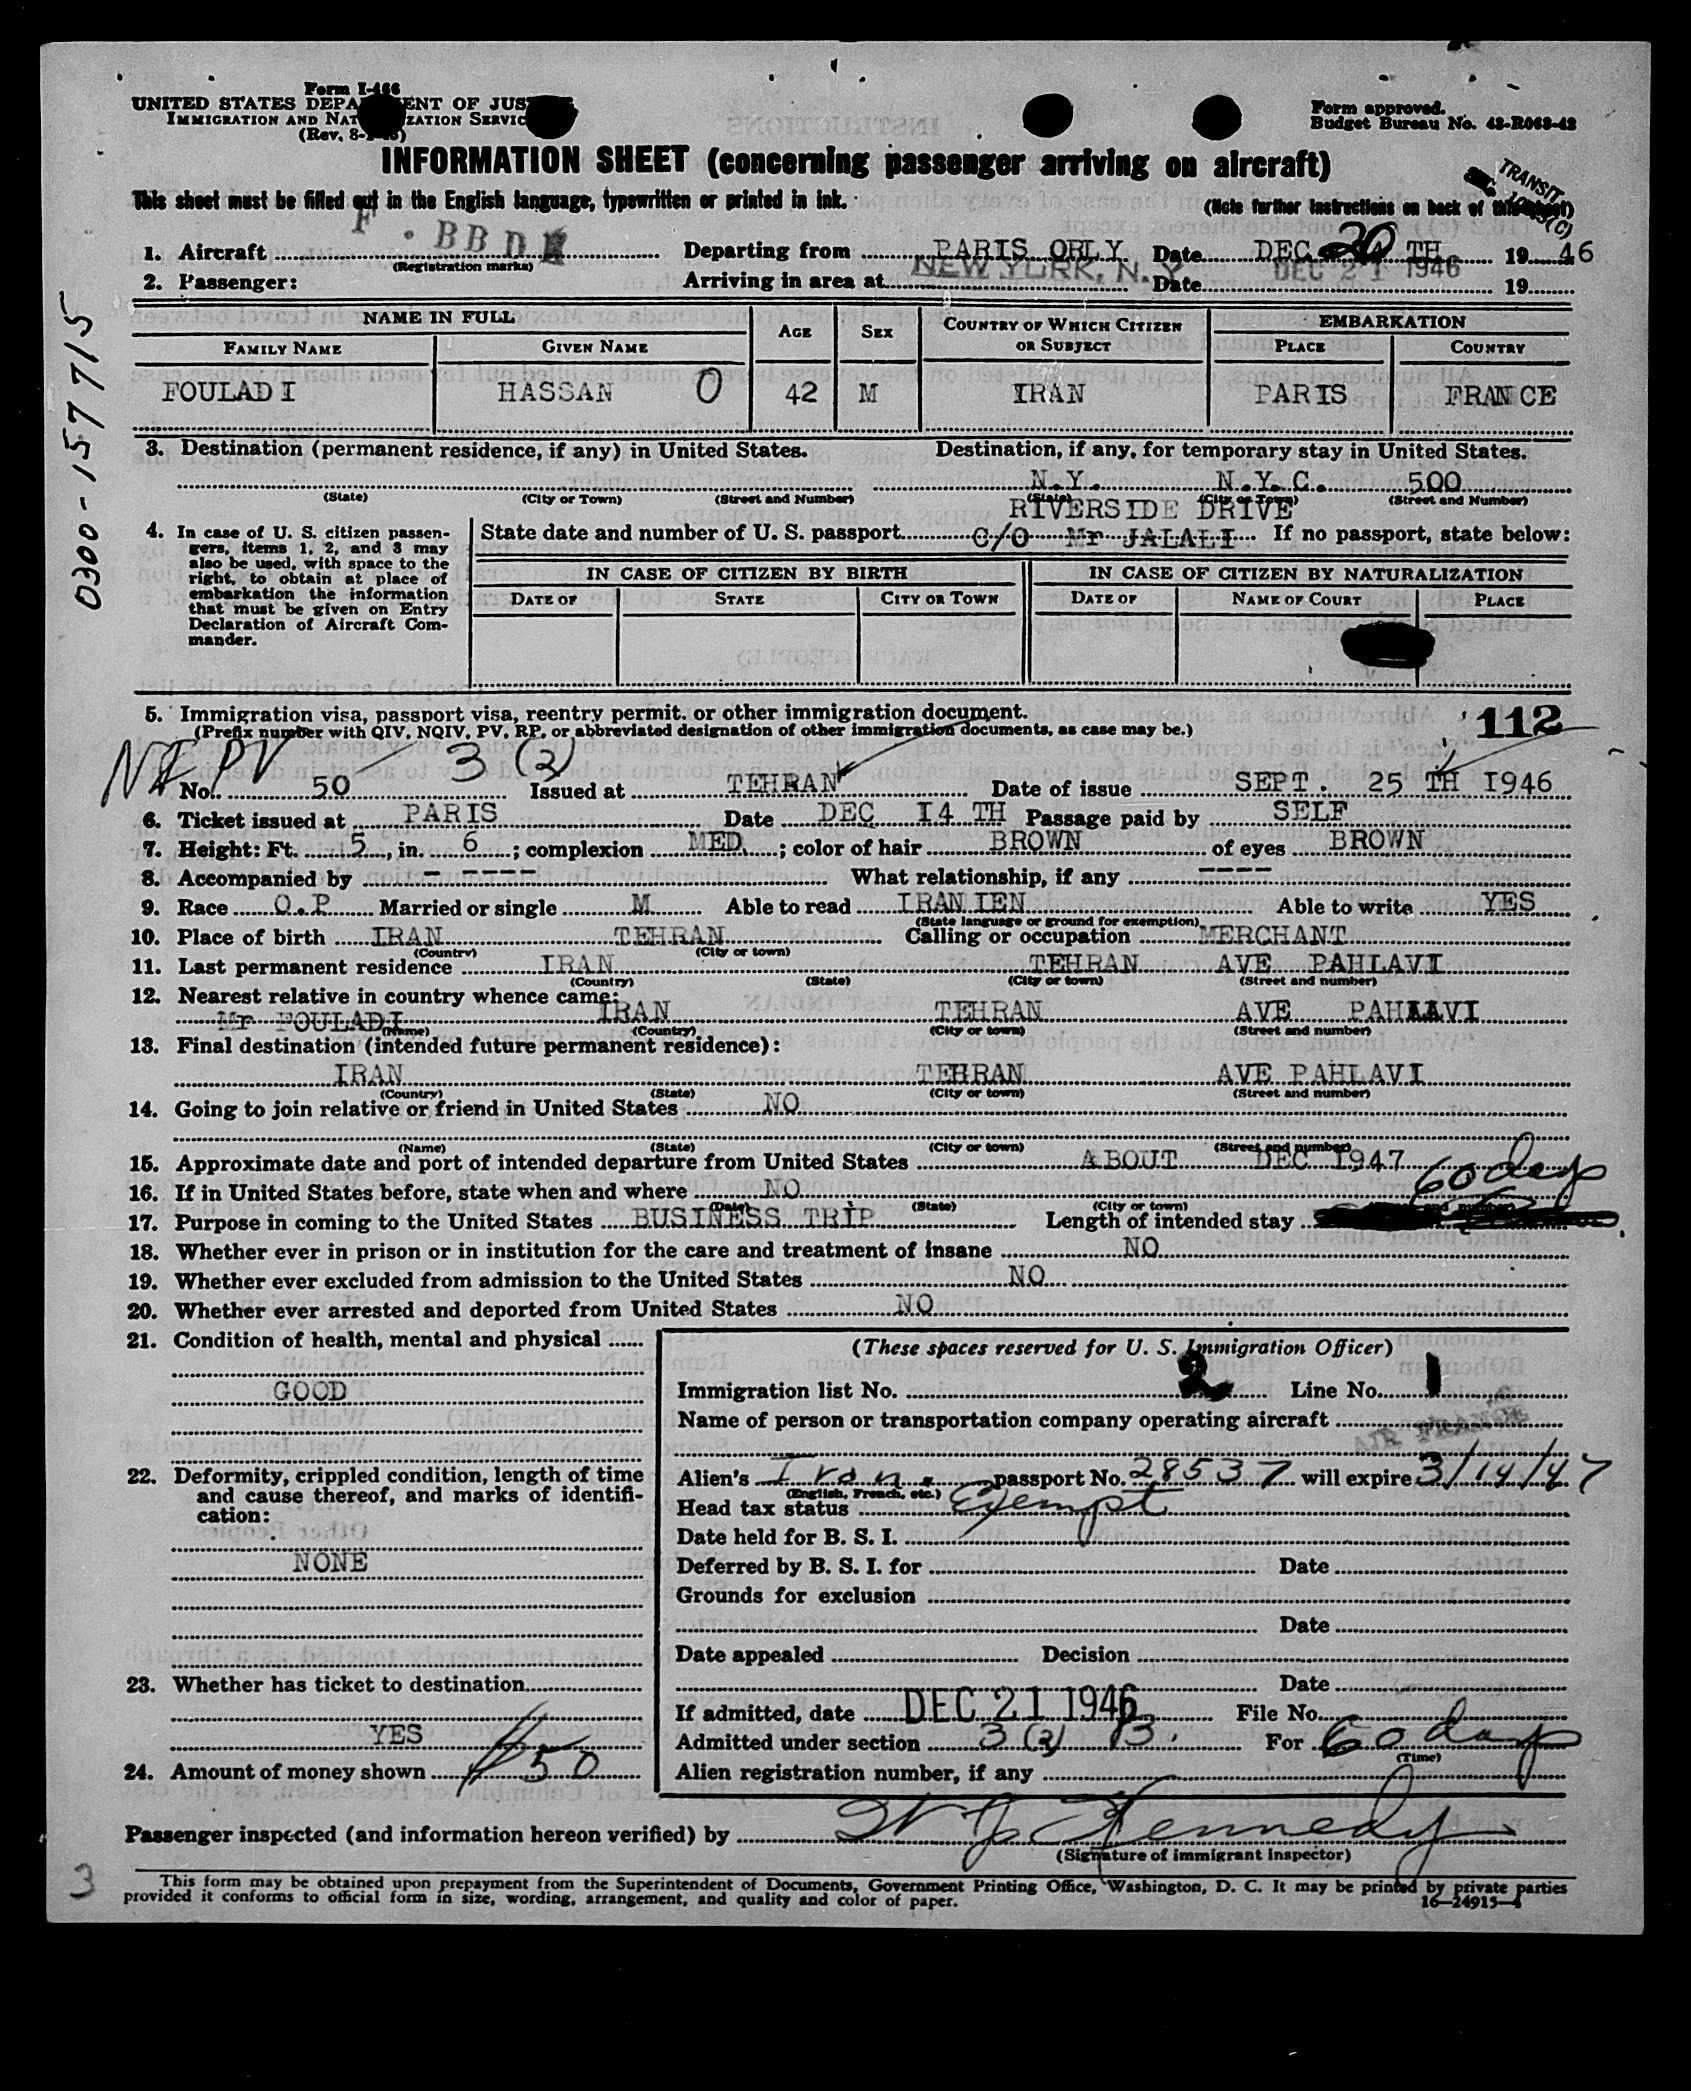 Form I-466
UNITED STATES DEPARTMENT OF JUSTICE
IMMIGRATION AND NATURALIZATION SERVICE
Form approved.
Budget Bureau No. 43-R063-42
INFORMATION SHEET (concerning passenger arriving on aircraft)
TRANSIT
This sheet must be filled out in the English language, typewritten or printed in ink. (Note further instructions on back of this sheet)
1. Aircraft F. BBD Departing from PARIS ORLY Date DEC 20 TH 19 46
(Registration marks)
2. Passenger: Arriving in area at NEW YORK, N. Y. Date DEC 21 1946 19
NAME IN FULL AGE SEX COUNTRY OF WHICH CITIZEN OR SUBJECT EMBARKATION
FAMILY NAME GIVEN NAME PLACE COUNTRY
FOULADI HASSAN O 42 M IRAN PARIS FRANCE
3. Destination (permanent residence, if any) in United States. Destination, if any, for temporary stay in United States.
N.Y. N.Y.C. 500
(State) (City or Town) (Street and Number) (State) (City or Town) (Street and Number)
RIVERSIDE DRIVE
4. In case of U. S. citizen passengers, items 1, 2, and 3 may also be used, with space to the right, to obtain at place of embarkation the information that must be given on Entry Declaration of Aircraft Commander.
State date and number of U. S. passport C/O Mr JALALI If no passport, state below:
IN CASE OF CITIZEN BY BIRTH IN CASE OF CITIZEN BY NATURALIZATION
DATE OF STATE CITY OR TOWN DATE OF NAME OF COURT PLACE
0300-157715
5. Immigration visa, passport visa, reentry permit, or other immigration document. 112
(Prefix number with QIV, NQIV, PV, RP, or abbreviated designation of other immigration documents, as case may be.)
PV 3 (2)
No. 50 Issued at TEHRAN Date of issue SEPT. 25 TH 1946
6. Ticket issued at PARIS Date DEC 14 TH Passage paid by SELF
7. Height: Ft. 5, in. 6; complexion MED.; color of hair BROWN of eyes BROWN
8. Accompanied by - ---- What relationship, if any ----
9. Race O.P Married or single M Able to read IRANIEN Able to write YES
(State language or ground for exemption)
10. Place of birth IRAN TEHRAN Calling or occupation MERCHANT
(Country) (City or town)
11. Last permanent residence IRAN TEHRAN AVE PAHLAVI
(Country) (State) (City or town) (Street and number)
12. Nearest relative in country whence came:
Mr FOULADI IRAN TEHRAN AVE PAHLAVI
(Name) (Country) (City or town) (Street and number)
13. Final destination (intended future permanent residence):
IRAN TEHRAN AVE PAHLAVI
(Country) (State) (City or town) (Street and number)
14. Going to join relative or friend in United States NO
(Name) (State) (City or town) (Street and number)
15. Approximate date and port of intended departure from United States ABOUT DEC 1947
16. If in United States before, state when and where NO
(Date) (State) (City or town)
60 days
17. Purpose in coming to the United States BUSINESS TRIP Length of intended stay
18. Whether ever in prison or in institution for the care and treatment of insane NO
19. Whether ever excluded from admission to the United States NO
20. Whether ever arrested and deported from United States NO
21. Condition of health, mental and physical
GOOD
22. Deformity, crippled condition, length of time and cause thereof, and marks of identification:
NONE
23. Whether has ticket to destination
YES
24. Amount of money shown $50
(These spaces reserved for U. S. Immigration Officer)
Immigration list No. 2 Line No. 1
Name of person or transportation company operating aircraft
AIR FRANCE
Alien's Iran. passport No. 28537 will expire 3/14/47
(English, French, etc.)
Head tax status Exempt
Date held for B. S. I.
Deferred by B. S. I. for Date
Grounds for exclusion
Date
Date appealed Decision
Date
If admitted, date DEC 21 1946 File No.
Admitted under section 3 (2) B. For 60 days
(Time)
Alien registration number, if any
Passenger inspected (and information hereon verified) by W J Kennedy
(Signature of immigrant inspector)
3
This form may be obtained upon prepayment from the Superintendent of Documents, Government Printing Office, Washington, D. C. It may be printed by private parties
provided it conforms to official form in size, wording, arrangement, and quality and color of paper. 16—24915-1